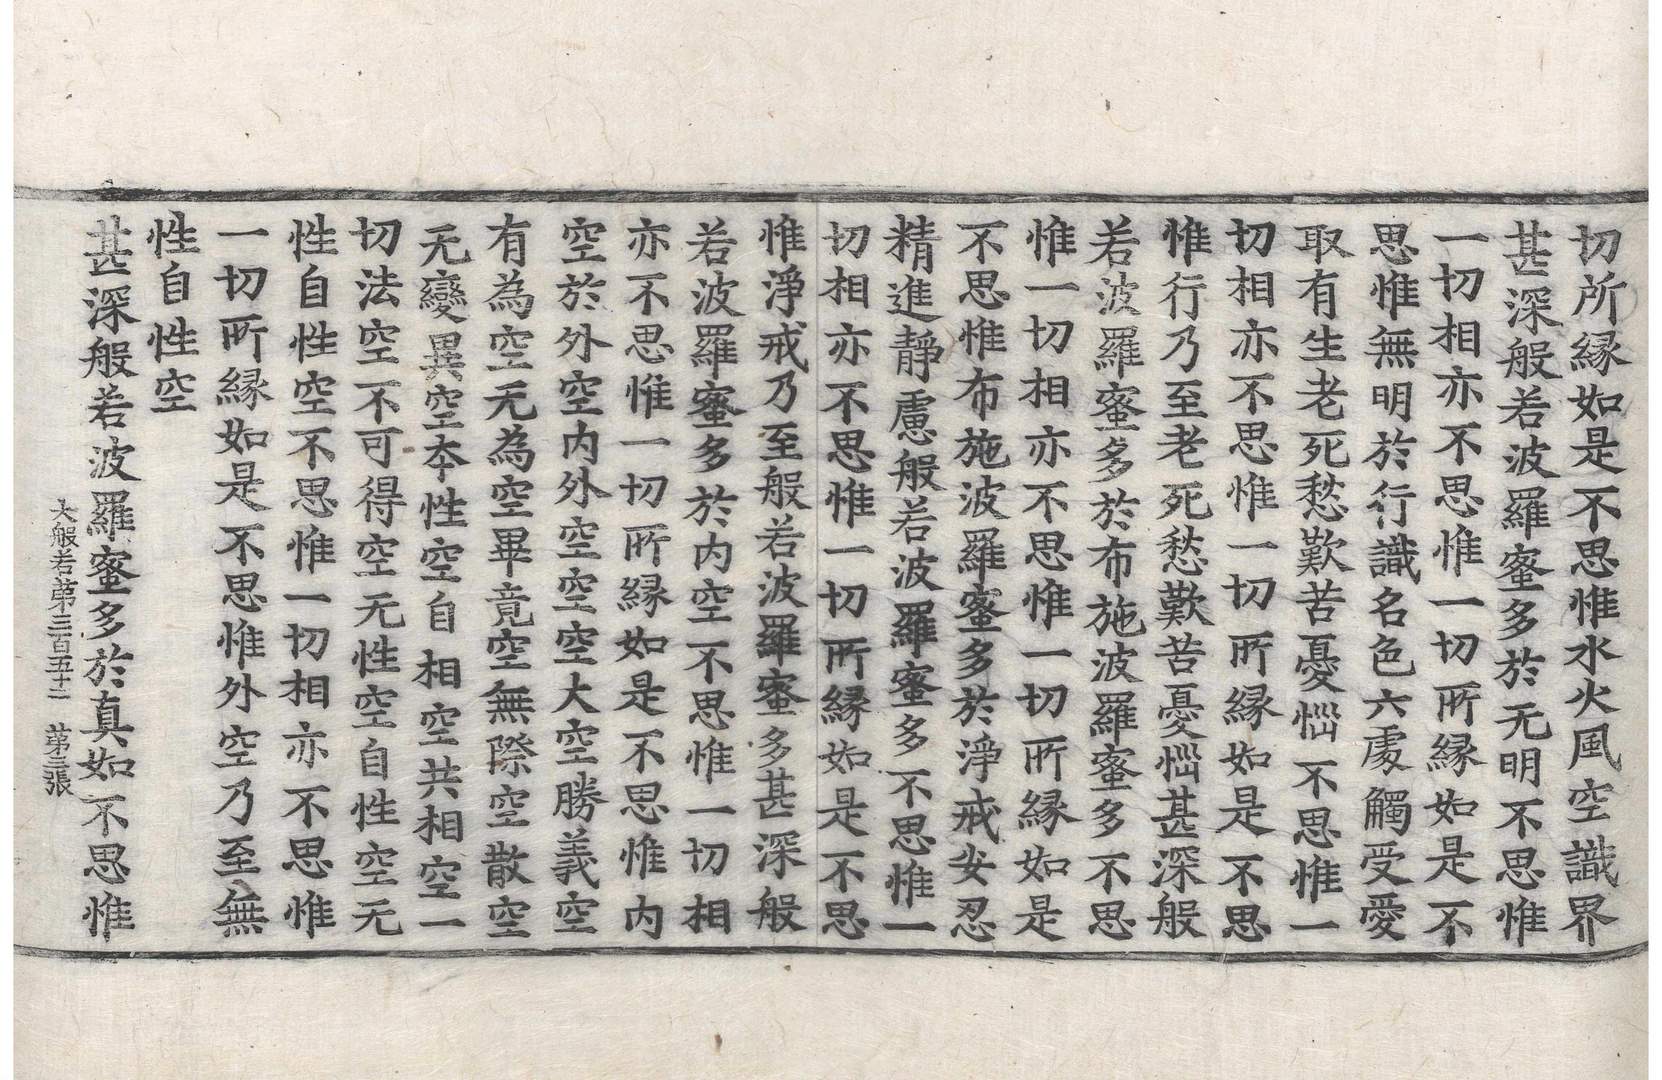 切所縁如是不思惟水火風空識界
甚深般若波羅蜜多於无明不思惟
一切相亦不思惟一切所縁如是不
思惟無明於行識名色六處觸受愛
取有生老死愁歎苦憂惱不思惟一
切相亦不思惟一切所縁如是不思
惟行乃至老死愁歎苦憂惱甚深般
若波羅蜜多於布施波羅蜜多不思
惟一切相亦不思惟一切所縁如是
不思惟布施波羅蜜多於淨戒安忍
精進靜慮般若波羅蜜多不思惟一
切相亦不思惟一切所縁如是不思
惟淨戒乃至般若波羅蜜多甚深般
若波羅蜜多於内空不思惟一切相
亦不思惟一切所縁如是不思惟内
空於外空内外空空空大空勝義空
有為空无為空畢竟空無際空散空
无變異空本性空自相空共相空一
切法空不可得空无性空自性空无
性自性空不思惟一切相亦不思惟
一切所縁如是不思惟外空乃至無
性自性空
甚深般若波羅蜜多於真如不思惟
大般若第三百五十二 第三張